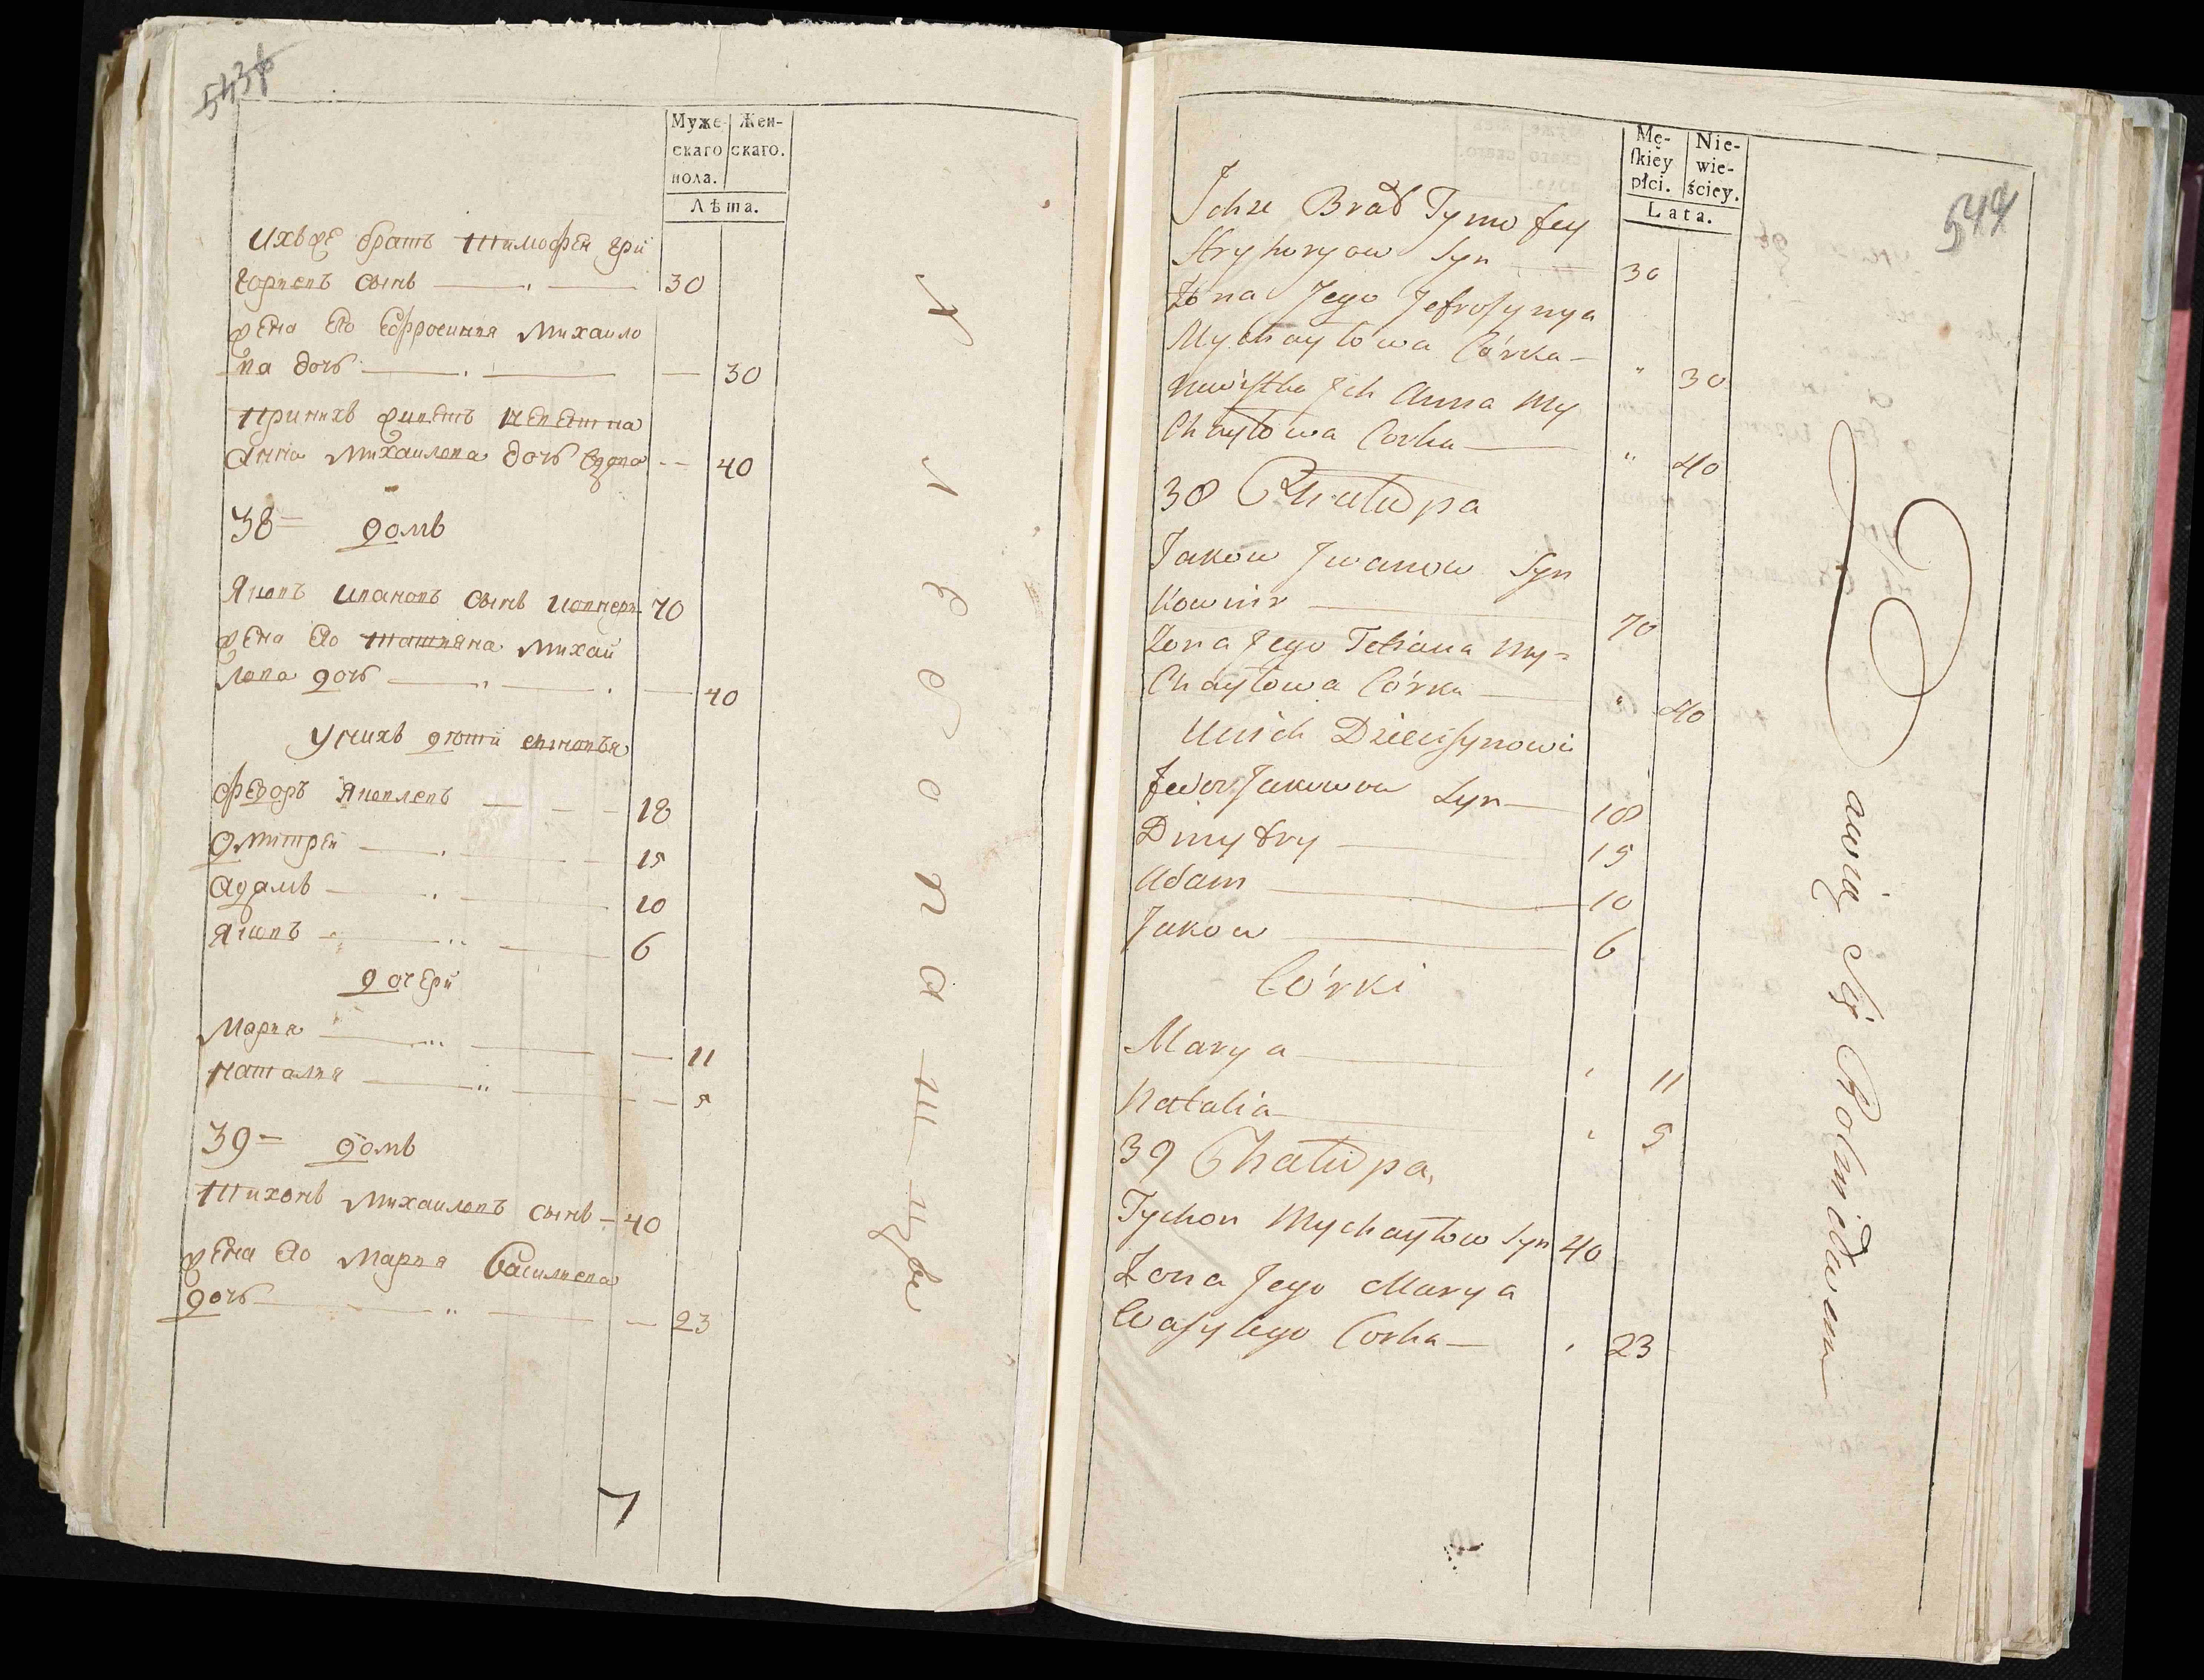 543
Муже- Жен-
скаго скаго.
пола.
Лѣта.
Ихъ же братъ Тимофей Гри
гориевъ сынъ 30
жена Его Ефросиния Михайло
ва дочь 30
При нихъ живетъ невестка
Анна Михайлова дочь вдова 40
38 домъ
Яковъ Ивановъ сынъ 70
жена Его Татияна Михай
лова дочь 40
У нихъ дети сыновья
Федоръ Яковлевъ 18
Дмитрей 15
Адамъ 10
Яковъ 6
дочери
Мария 11
Наталия 5
39 домъ
Тихонъ Михайловъ сынъ 40
жена Его Мария Василиева
дочь 23
7
544
Mę- Nie-
ſkiéy wie-
płci. ściey.
Lata.
Ichże Brat Tymofey
Hryhoryow Syn 30
Żona Jego Jefrosynya
Mychayłowa Córka " 30
Newistka Ich Anna My
Chayłowa Corka " 40
38 Chałupa
Jakow Iwanow Syn
70
Żona Jego Tetiana My=
Chayłowa Córka " 40
Unich Dzieci synowie
Fedor Jakowow Syn 18
Dmytry 15
Adam 10
Jakow 6
Córki
Marya 11
Natalia 5
39 Chałupa.
Tychon Mychayłow Syn 40
Żona Jego Marya
Wasylego Corka 23